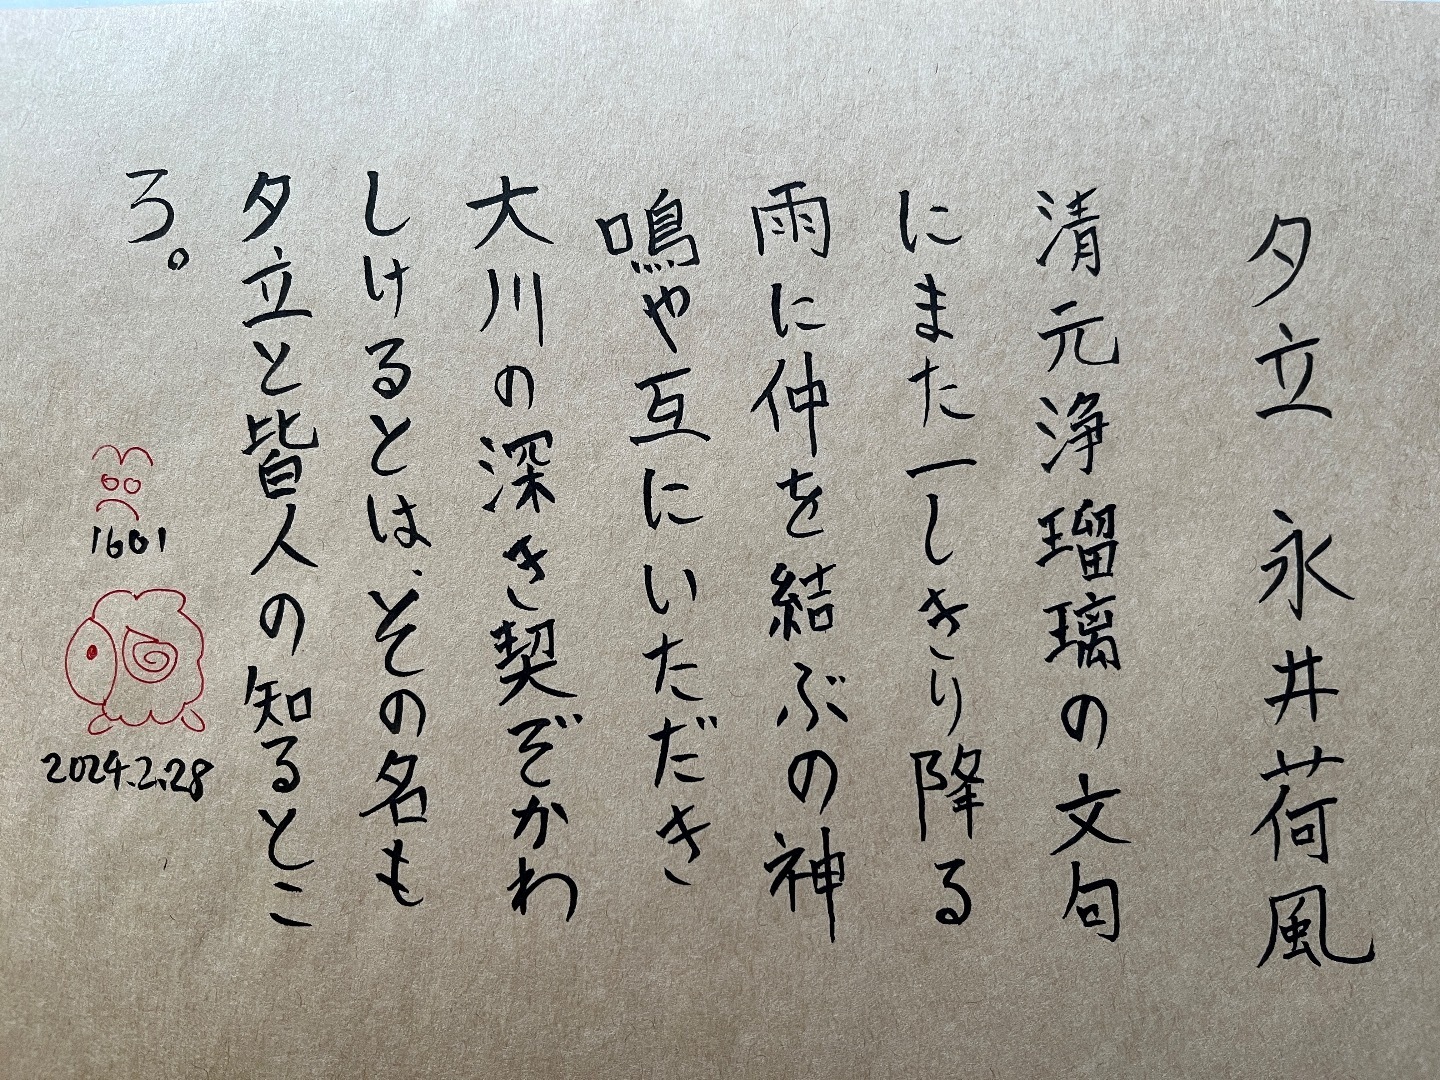 夕立 永井荷風
清元浄瑠璃の文句
にまた一しきり降る
雨に仲を結ぶの神
鳴や互にいただき
大川の深き契ぞかわ
しけるとは、その名も
夕立と皆人の知るとこ
ろ。
1601
2024.2.28